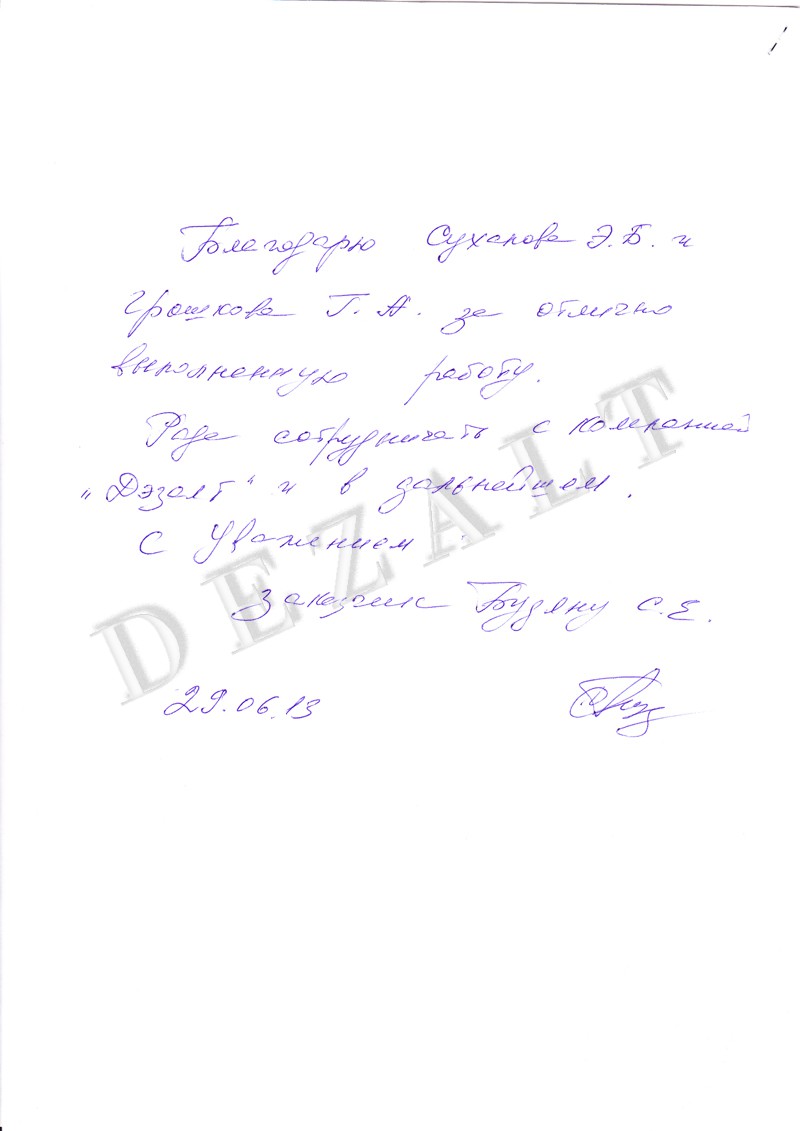 Благодарю Суханова Э.Б. и
Грошкова Г.А. за отлично
выполненную работу.
Рада сотрудничать с компанией
"Дэзалт" и в дальнейшем.
С Уважением
Заказчик Будяну С.Е.
29.06.13
DEZALT